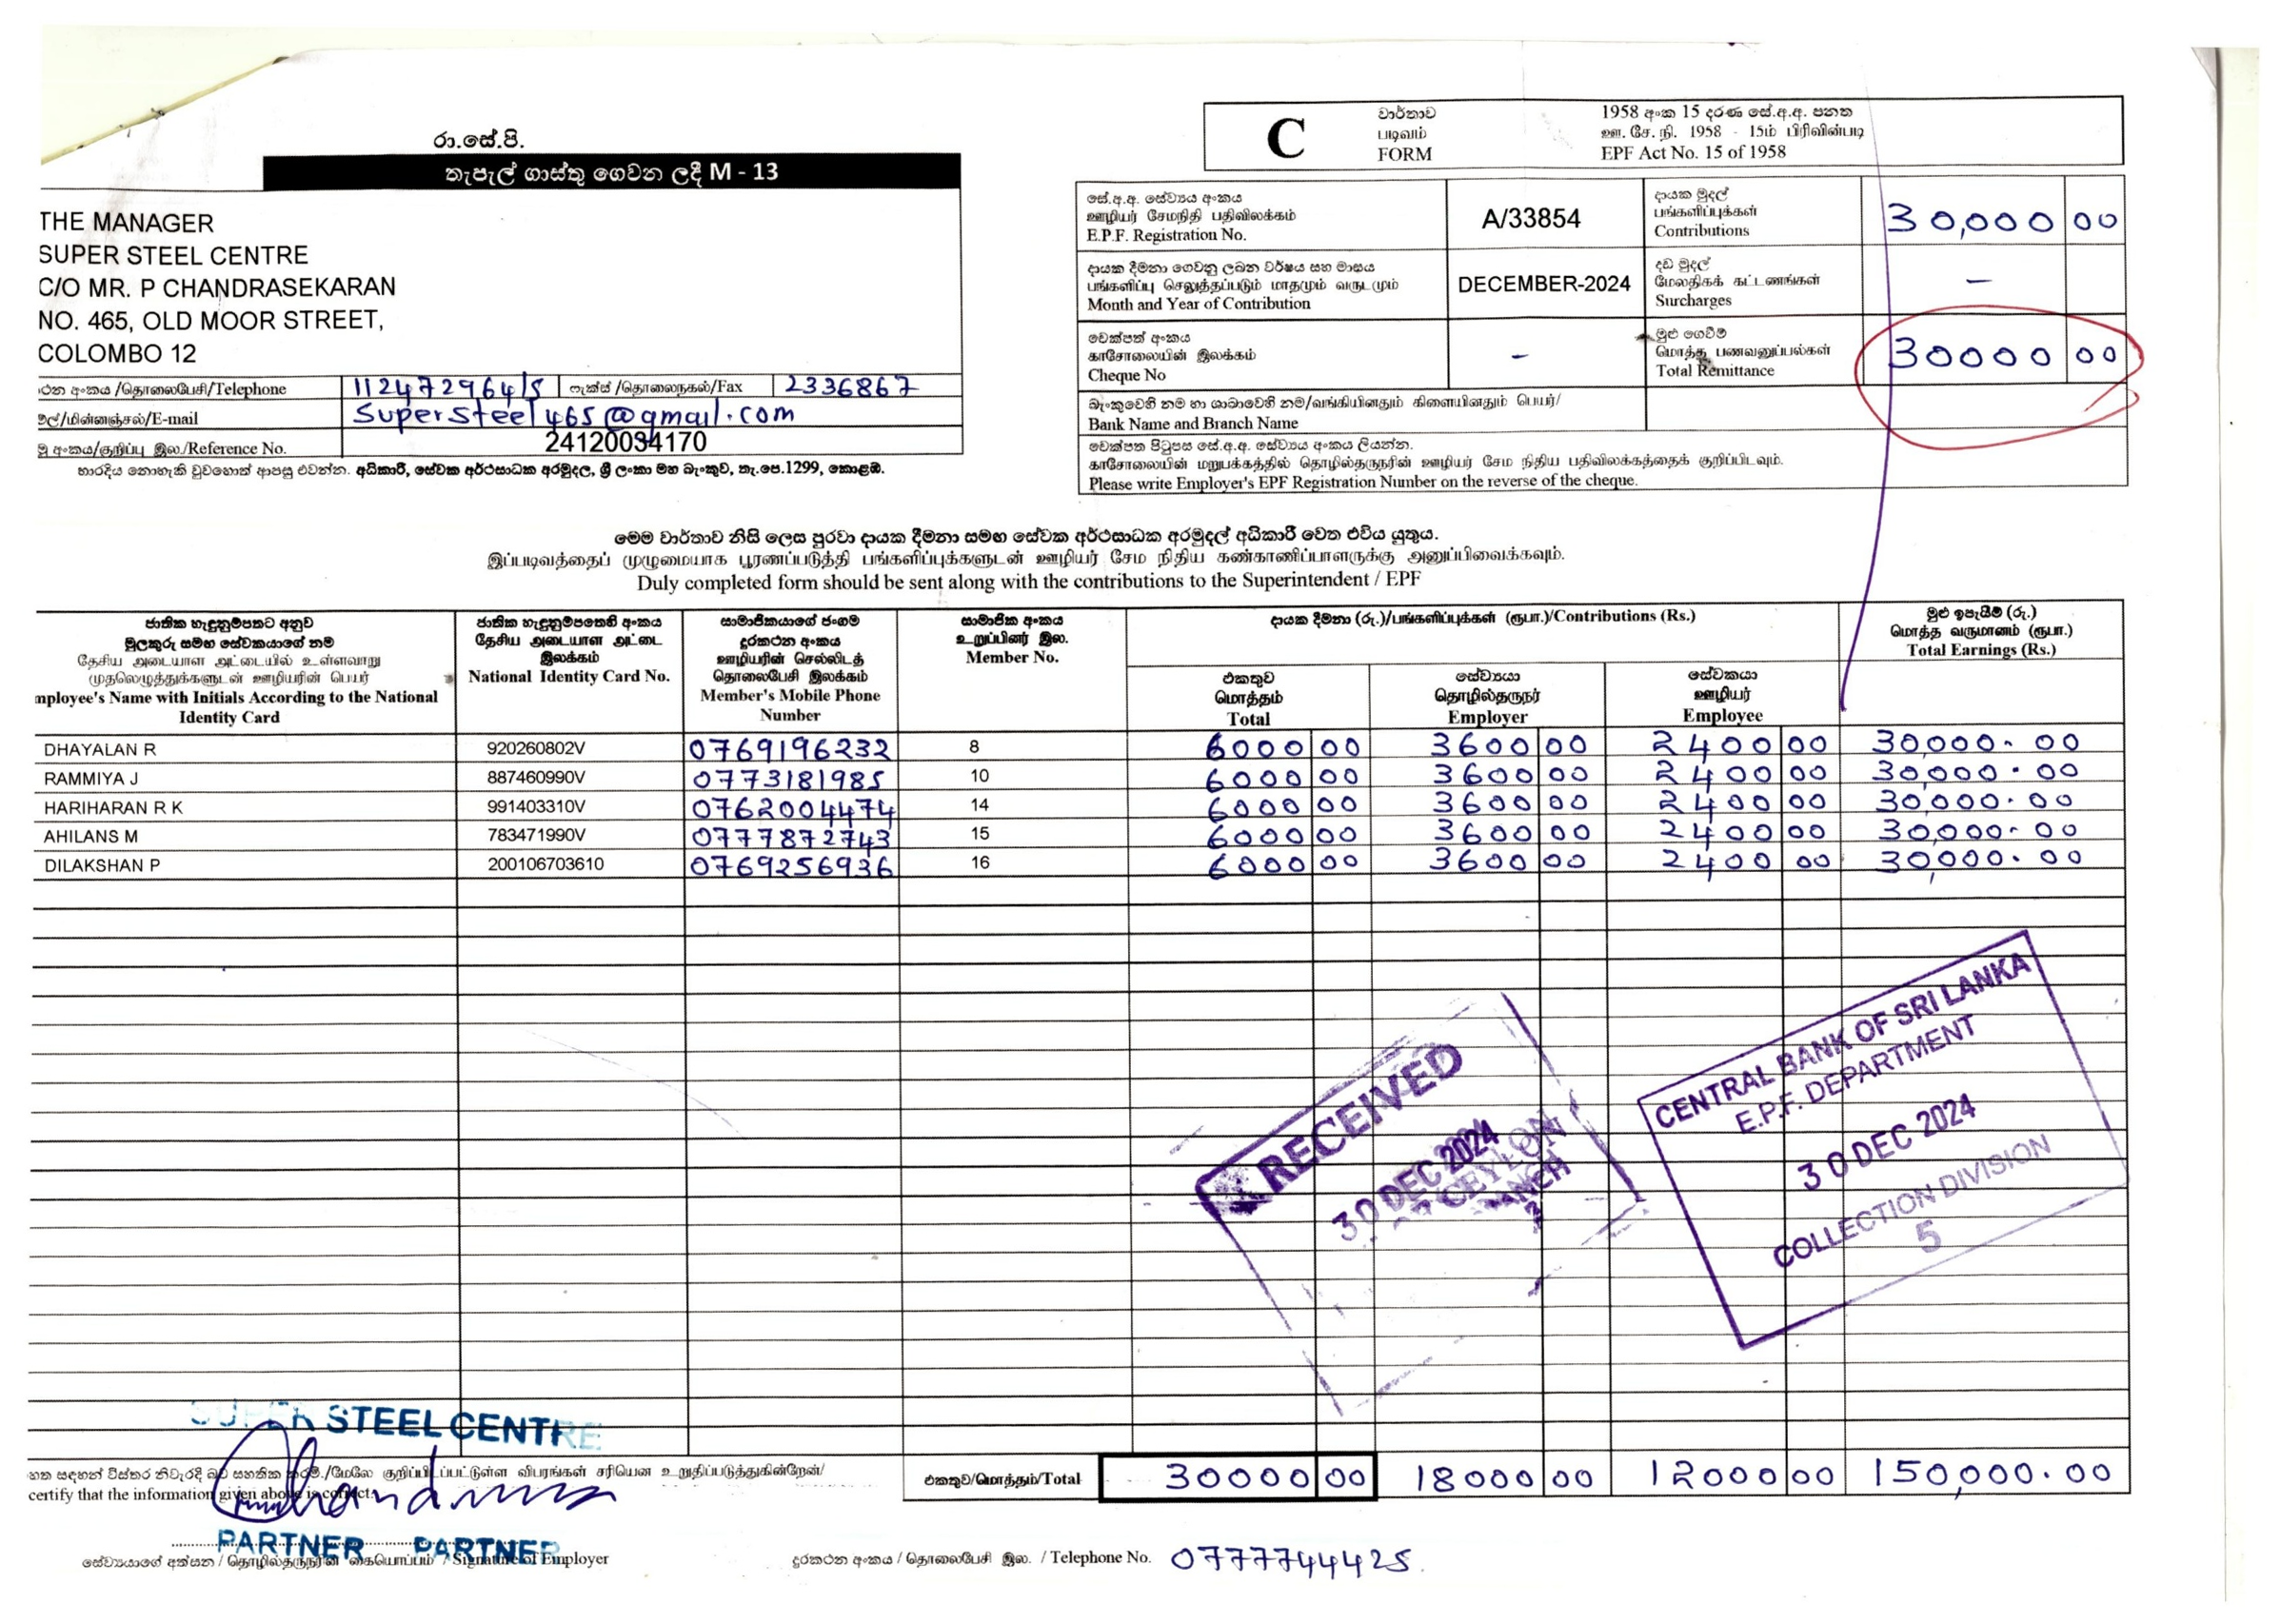 රා.සේ.පි.
තැපැල් ගාස්තු ගෙවන ලදී M - 13
THE MANAGER
SUPER STEEL CENTRE
C/O MR. P CHANDRASEKARAN
NO. 465, OLD MOOR STREET,
COLOMBO 12
/தொலைபேசி/Telephone 112472964/5 ෆැක්ස් /தொலைநகல்/Fax 2336867
/மின்னஞ்சல்/E-mail Supersteel465@gmail.com
අංකය/குறிப்பு இல./Reference No. 24120034170
භාරදිය නොහැකි වුවහොත් ආපසු එවන්න. අධිකාරී, සේවක අර්ථසාධක අරමුදල, ශ්‍රී ලංකා මහ බැංකුව, තැ.පෙ.1299, කොළඹ.
C
වාර්තාව
படிவம்
FORM
1958 අංක 15 දරණ සේ.අ.අ. පනත
ஊ. சே. நி. 1958 - 15ம் பிரிவின்படி
EPF Act No. 15 of 1958
සේ.අ.අ. සේව්‍යය අංකය
ஊழியர் சேமநிதி பதிவிலக்கம்
E.P.F. Registration No.
A/33854
දායක මුදල්
பங்களிப்புக்கள்
Contributions
30,000 00
දායක දීමනා ගෙවනු ලබන වර්ෂය සහ මාසය
பங்களிப்பு செலுத்தப்படும் மாதமும் வருடமும்
Month and Year of Contribution
DECEMBER-2024
දඩ මුදල්
மேலதிகக் கட்டணங்கள்
Surcharges
–
චෙක්පත් අංකය
காசோலையின் இலக்கம்
Cheque No
–
මුළු ගෙවීම්
மொத்த பணவனுப்பல்கள்
Total Remittance
30000 00
බැංකුවෙහි නම හා ශාඛාවෙහි නම/வங்கியினதும் கிளையினதும் பெயர்/
Bank Name and Branch Name
චෙක්පත පිටුපස සේ.අ.අ. සේව්‍යය අංකය ලියන්න.
காசோலையின் மறுபக்கத்தில் தொழில்தருநரின் ஊழியர் சேம நிதிய பதிவிலக்கத்தைக் குறிப்பிடவும்.
Please write Employer's EPF Registration Number on the reverse of the cheque.
මෙම වාර්තාව නිසි ලෙස පුරවා දායක දීමනා සමඟ සේවක අර්ථසාධක අරමුදල් අධිකාරී වෙත එවිය යුතුය.
இப்படிவத்தைப் முழுமையாக பூரணப்படுத்தி பங்களிப்புக்களுடன் ஊழியர் சேம நிதிய கண்காணிப்பாளருக்கு அனுப்பிவைக்கவும்.
Duly completed form should be sent along with the contributions to the Superintendent / EPF
ජාතික හැඳුනුම්පතට අනුව
මුලකුරු සමඟ සේවකයාගේ නම
தேசிய அடையாள அட்டையில் உள்ளவாறு
முதலெழுத்துக்களுடன் ஊழியரின் பெயர்
mployee's Name with Initials According to the National
Identity Card
ජාතික හැඳුනුම්පතෙහි අංකය
தேசிய அடையாள அட்டை
இலக்கம்
National Identity Card No.
සාමාජිකයාගේ ජංගම
දුරකථන අංකය
ஊழியரின் செல்லிடத்
தொலைபேசி இலக்கம்
Member's Mobile Phone
Number
සාමාජික අංකය
உறுப்பினர் இல.
Member No.
දායක දීමනා (රු.)/பங்களிப்புக்கள் (ரூபா.)/Contributions (Rs.)
එකතුව
மொத்தம்
Total
සේව්‍යයා
தொழில்தருநர்
Employer
සේවකයා
ஊழியர்
Employee
මුළු ඉපැයීම් (රු.)
மொத்த வருமானம் (ரூபா.)
Total Earnings (Rs.)
DHAYALAN R 920260802V 0769196232 8 6000 00 3600 00 2400 00 30,000. 00
RAMMIYA J 887460990V 0773181985 10 6000 00 3600 00 2400 00 30,000. 00
HARIHARAN R K 991403310V 0762004474 14 6000 00 3600 00 2400 00 30,000. 00
AHILANS M 783471990V 0777872743 15 6000 00 3600 00 2400 00 30,000. 00
DILAKSHAN P 200106703610 0769256936 16 6000 00 3600 00 2400 00 30,000. 00
RECEIVED
30 DEC 2024
CEYLON
CENTRAL BANK OF SRI LANKA
E.P.F. DEPARTMENT
30 DEC 2024
COLLECTION DIVISION
5
SUPER STEEL CENTRE
සඳහන් විස්තර නිවැරදි බව සහතික කරමි./மேலே குறிப்பிடப்பட்டுள்ள விபரங்கள் சரியென உறுதிப்படுத்துகின்றேன்/
certify that the information given above is correct.
එකතුව/மொத்தம்/Total 30000 00 18000 00 12000 00 150,000. 00
PARTNER PARTNER
සේව්‍යයාගේ අත්සන / தொழில்தருநரின் கையொப்பம் / Signature of Employer
දුරකථන අංකය / தொலைபேசி இல. / Telephone No. 0777744425